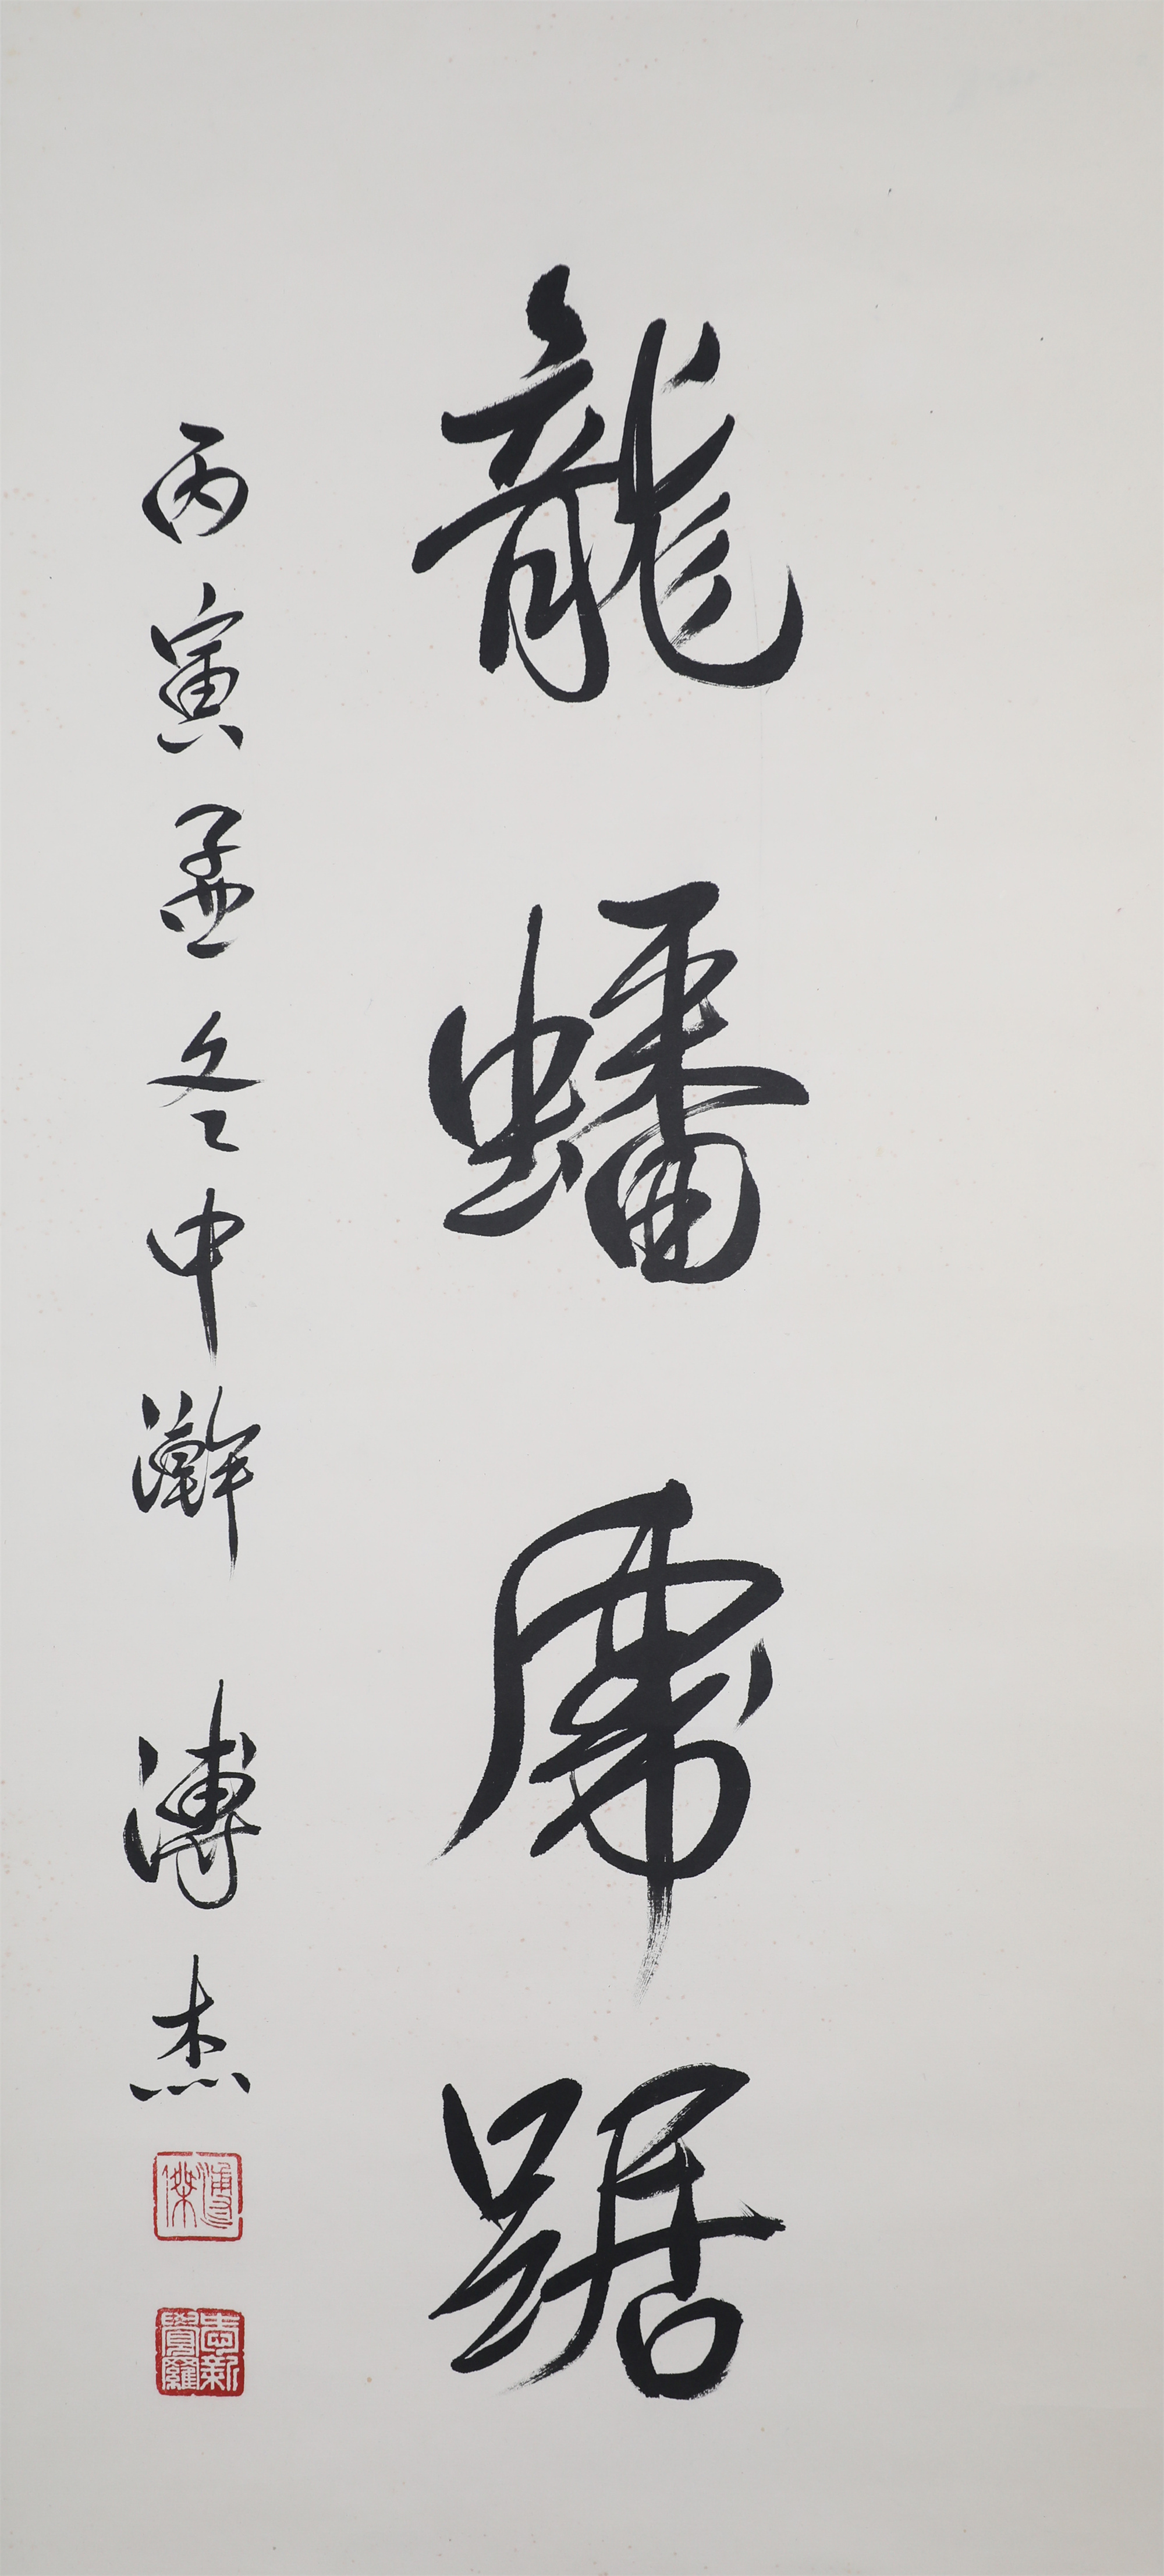 龍蟠虎踞
丙寅孟冬中澣 溥杰
溥傑
愛新覺羅